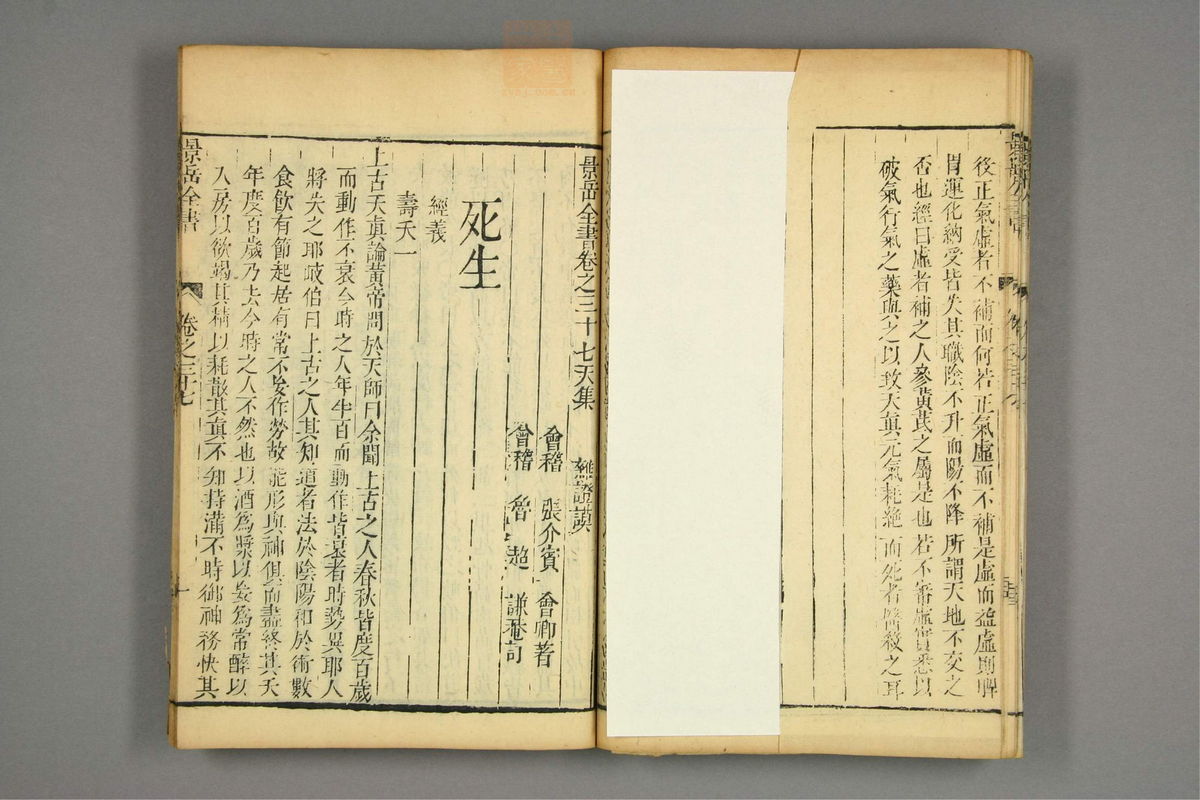 後正氣虛者不補而何若正氣虛而不補是虛而益虛則脾
胃運化納受皆失其職陰不升而陽不降所謂天地不交之
否也經曰虛者補之人參黃芪之屬是也若不審虛實悉以
破氣行氣之藥與之以致天眞元氣耗絶而死者醫殺之耳
景岳全書卷之三十七天集 雜證謨
會稽 張介賓 會卿著
會稽 魯 超 謙菴訂
死生
經義
壽夭一
上古天眞論黃帝問於天師曰余聞上古之人春秋皆度百歲
而動作不衰今時之人年半百而動作皆衰者時勢異耶人
將失之耶岐伯曰上古之人其知道者法於陰陽和於術數
食飲有節起居有常不妄作勞故能形與神俱而盡終其天
年度百歲乃去今時之人不然也以酒爲漿以妄爲常醉以
入房以欲竭其精以耗散其眞不知持滿不時御神務快其
景岳全書 卷之三十七 一